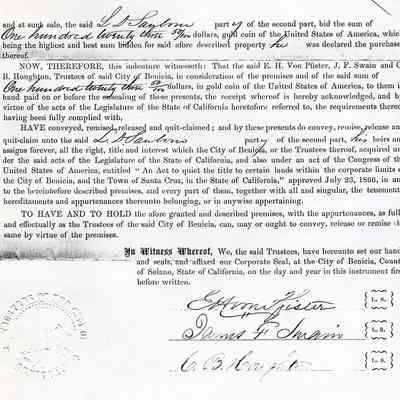 and at such sale, the said L. D. Sanborn party of the second part, bid the sum of
One hundred twenty three dollars, gold coin of the United States of America, which
being the highest and best sum bidden for said afore described property he was declared the purchase
thereof.
NOW, THEREFORE, this indenture witnesseth: That the said E. H. Von Pfister, J. F. Swain and C
B. Houghton, Trustees of said City of Benicia, in consideration of the premises and of the said sum of
One hundred twenty three dollars, gold coin of the United States of America, to them i
hand paid on or before the ensealing of these presents, the receipt whereof is hereby acknowledged, and b
virtue of the acts of the Legislature of the State of California heretofore referred to, the requirements thereo
having been fully complied with,
HAVE conveyed, remised, released and quit-claimed; and by these presents do convey, remise, release an
quit-claim unto the said L. D. Sanborn party of the second part, his heirs an
assigns forever, all the right, title and interest which the City of Benicia, or the Trustees thereof, acquired un
der the said acts of the Legislature of the State of California, and also under an act of the Congress of th
United States of America, entitled " An Act to quiet the title to certain lands within the corporate limits o
the City of Benicia, and the Town of Santa Cruz, in the State of California," approved July 23, 1866, in an
to the hereinbefore described premises, and every part of them, together with all and singular, the tenement
hereditaments and appurtenances thereunto belonging, or in anywise appertaining.
TO HAVE AND TO HOLD the afore granted and described premises, with the appurtenances, as fully
and effectually as the Trustees of the said City of Benicia, can, may or ought to convey, release or remise th
same by virtue of the premises.
In Witness Whereof, We, the said Trustees, have hereunto set our hand
and seals, and affixed our Corporate Seal, at the City of Benicia, Count
of Solano, State of California, on the day and year in this instrument firs
before written.
E. H. von Pfister L. S.
James F. Swain L. S.
C. B. Houghton L. S.